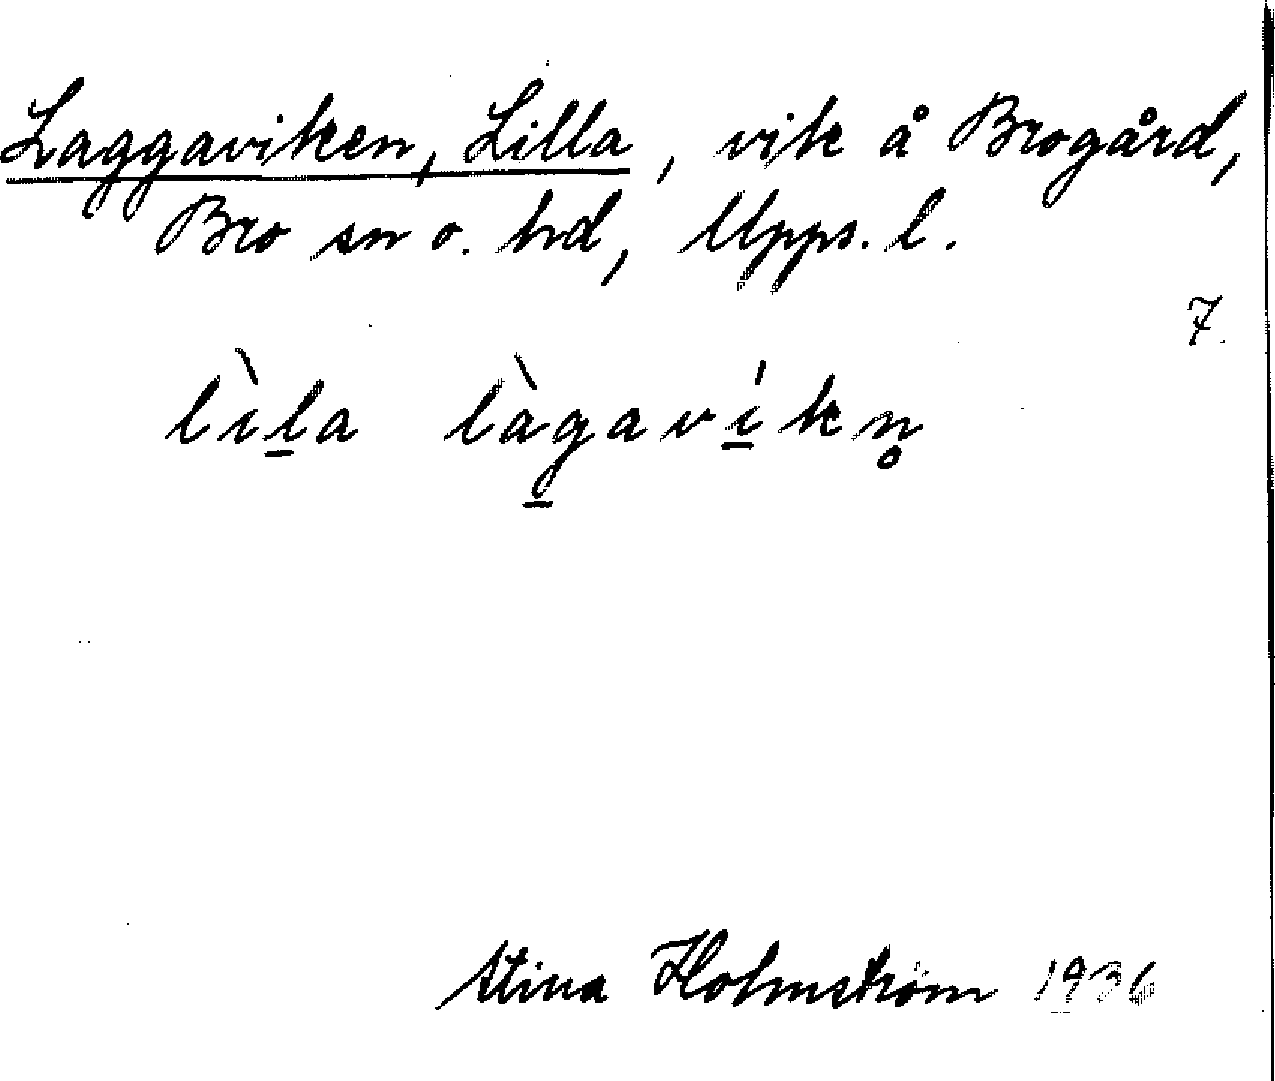 Laggaviken, Lilla, vik å Brogård,
Bro sn o. hd, Upps. l.
7.
lìl̲a làg̲aví̲kn̥
Stina Holmström 1936